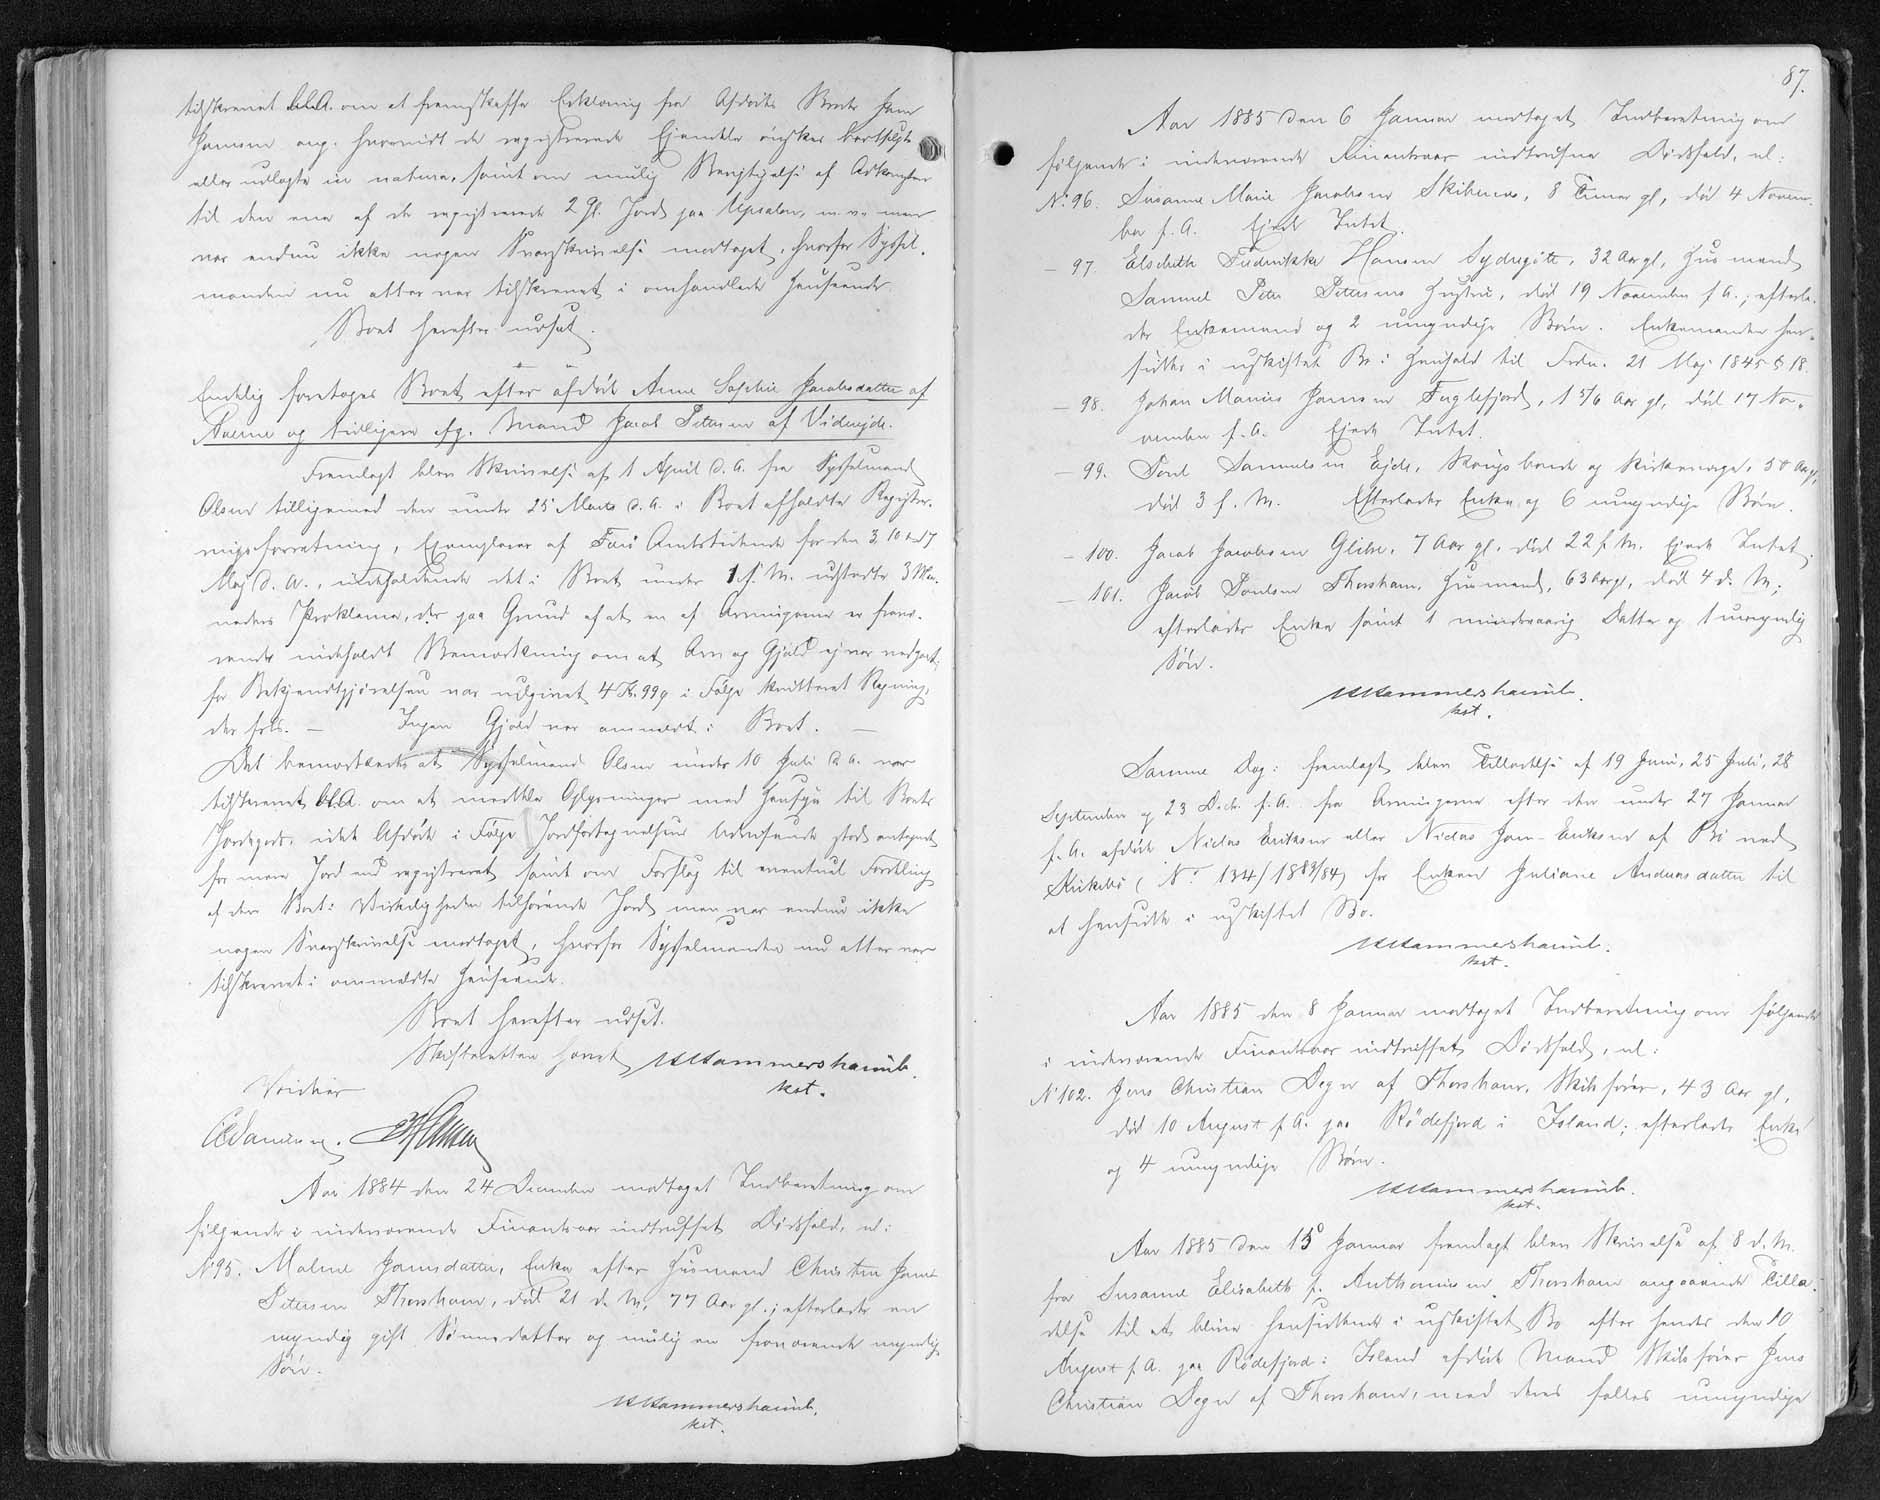 tilskrevet bl. A. om at fremskaffe Erklæring fra Afdødes Broder Jens
Hansen ang. hvorvidt de registrerede Ejendele ønskes bortsolgte
eller udlagte in natura, samt om mulig Berigtigelse af Adkomster
til den ene af de registrerede 2 Gl. Jord paa Upsalen, m. v. men
var endnu ikke nogen Svarskrivelse modtaget, hvorfor Syssel-
manden nu atter var tilskrevet i omhandlede Henseende.
Boet herefter udsat.
Endelig foretoges Boet efter afdøde Anne Sophie Jacobsdatter af
Kvenne og tidligere afg. Mand Jacob Petersen af Viderejde.
Fremlagt blev Skrivelse af 1 April d. A. fra Sysselmand
Olsen tilligemed den under 25 Marts d. A. i Boet afholdte Registre-
ringsforretning, Exemplarer af Færø Amtstidende for den 3, 10 og 17
Maj d. A., indeholdende det i Boet under 1 f. M. udstedte 3 Maa-
neders Proklama, der paa Grund af at en af Arvingerne er fravæ-
rende indeholdt Bemærkning om at Arv og Gjæld ej var vedgaaet;
for Bekjendtgjørelsen var udgivet 4 Kr. 99 ø i Følge kvitteret Regning,
der fols. — Ingen Gjæld var anmeldt i Boet. —
Det bemærkedes at Sysselmand Olsen under 10 Juli d. A. var
tilskrevet bl. A. om at meddele Oplysninger med Hensyn til Boets
Jordegods, idet Afdøde i Følge Jordfortegnelsen udvisende stod antegnet
for mere Jord end registreret, samt om Forslag til eventuel Fordeling
af den Boet i Virkeligheden tilhørende Jord men var endnu ikke
nogen Svarskrivelse modtaget, hvorfor Sysselmanden nu atter var
tilskrevet i ommeldte Henseende.
Boet herefter udsat.
Skifteretten hævet HHammershaimb.
kst.
Vidner
Aar 1884 den 24 December modtaget Indberetning om
følgende i indeværende Finantsaar indtruffet Dødsfald, nl:
N 95. Malene Joensdatter, Enke efter Husmand Christen Joen
Petersen Thorshavn, død 21 d. M. 77 Aar gl.; efterlader en
myndig gift Sønnedatter og mulig en fraværende myndig
Søn.
HHammershaimb.
kst.
87.
Aar 1885 den 6 Januar modtaget Indberetning om
følgende i indeværende Finantsaar indtrufne Dødsfald, nl:
N: 96. Susanne Marie Jacobsen Skibenæs, 8 Timer gl, død 4 Novem-
ber f. A. Ejede Intet.
— 97. Elsebeth Fredrikke Hansen Sydregøte, 32 Aar gl, Husmand
Samuel Peter Petersens Hustru, død 19 November f. A.; efterla-
der Enkemand og 2 umyndige Børn. Enkemanden hen-
sidder i uskiftet Bo i Henhold til Frdn. 21 Maj 1845 § 18.
— 98. Johan Marius Joensen Fuglefjord, 1 5/6 Aar gl, død 17 No-
vember f. A. Ejede Intet.
— 99. Poul Samuelsen Ejde, Kongsbonde og Kirkeværge, 50 Aar gl,
død 3 f. M. Efterlader Enke og 6 umyndige Børn.
— 100. Jacob Jacobsen Glibre, 7 Aar gl, død 22 f. M. Ejede Intet.
— 101. Jacob Poulsen Thorshavn, Husmand, 63 Aar gl, død 4 d. M;
efterlader Enke samt 1 mindreaarig Datter og 1 umyndig
Søn.
HHammershaimb.
kst.
Samme Dag: fremlagt blev Tilladelse af 19 Juni, 25 Juli, 28
September og 23 Decb. f. A. fra Arvingerne efter den under 27 Januar
f. A. afdøde Niclas Eriksen eller Niclas Joen-Eriksen af Bø ved
Kirkebø (N: 134/1883/84) for Enken Juliane Andreasdatter til
at hensidde i uskiftet Bo.
HHammershaimb.
kst.
Aar 1885 den 8 Januar modtaget Indberetning om følgende
i indeværende Finantsaar indtruffet Dødsfald, nl:
N 102. Jens Christian Degn af Thorshavn, Skibsfører, 43 Aar gl,
død 10 August f. A. paa Rødefjord i Island; efterlader Enke
og 4 umyndige Børn.
HHammershaimb.
kst.
Aar 1885 den 15 Januar fremlagt blev Skrivelse af 8 d. M.
fra Susanne Elisabeth f. Anthoniesen Thorshavn angaaende Tilla-
delse til at blive hensiddende i uskiftet Bo efter hendes den 10
August f. A. paa Rødefjord i Island afdøde Mand Skibsfører Jens
Christian Degn af Thorshavn, med deres fælles umyndige